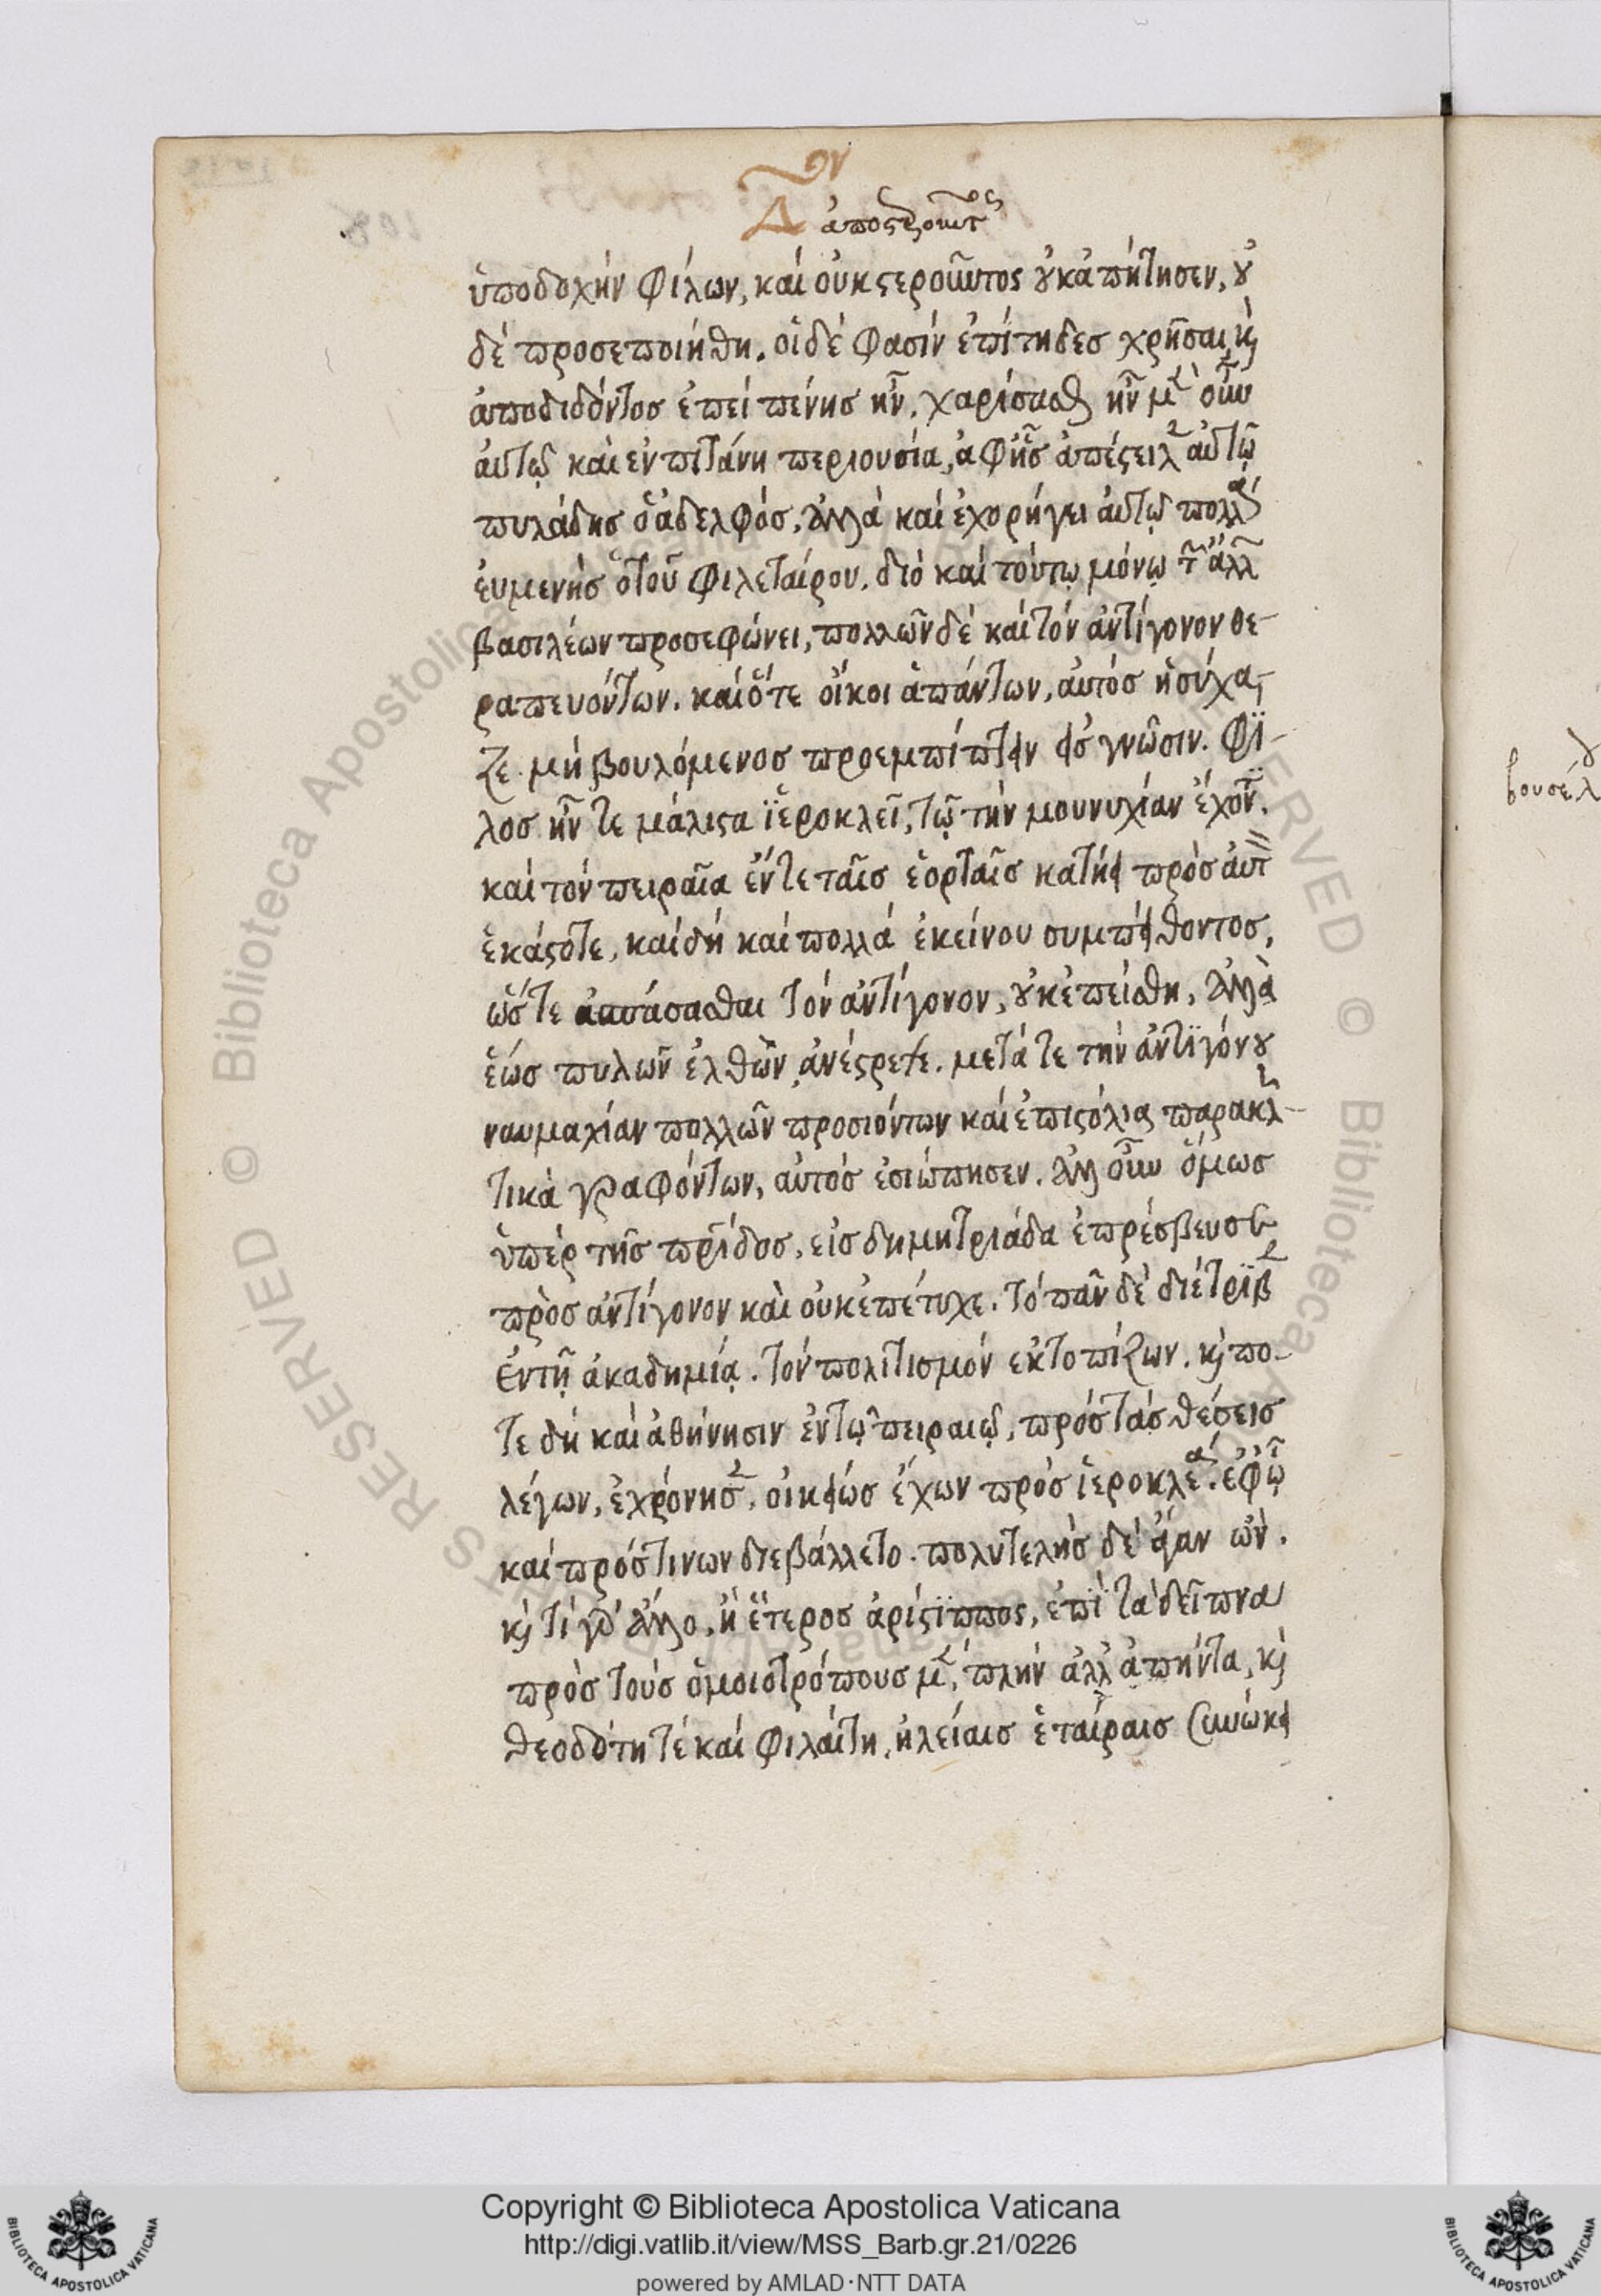 ὑποδοχήν φίλων, καί οὐκ στεροῦντος οὐκ ἀπήτησεν, οὐ
δέ προσεποιήθη. οἱ δέ φασίν ἐπίτηδες χρῆσαι, καὶ
ἀποδιδόντος ἐπεί πένης ἦν, χαρίσασθαι ἦν μὲν οὖν
αὐτῷ καὶ ἐν πιτάνη περιουσία, ἀφῆς ἀπέστειλεν αὐτῷ
πυλάδης ὁ ἀδελφός. ἀλλὰ καί ἐχορήγει αὐτῷ πολλὰ
εὐμενὴς ὁ τοῦ φιλεταίρου. διό καί τούτῳ μόνῳ τῶν ἄλλων
βασιλέων προσεφώνει, πολλῶν δέ καί τόν ἀντίγονον θε-
ραπευόντων. καί ὅτε οἵκοι ἁπάντων, αὐτός ἡσύχα-
ζε μή βουλόμενος προεμπίπτειν εἰς γνῶσιν. Φί-
λος ἦν τε μάλιστα ἱεροκλεῖ, τῷ τήν μουνυχίαν ἔχοντι.
καί τόν πειραῖα ἔν τε ταῖς ἑορταῖς κατήει πρὸς αὐτὸν
ἑκάστοτε, καί δή καί πολλά ἐκείνου συμπείθοντος,
ὥστε ἀσπάσασθαι τόν ἀντίγονον, οὐκ ἐπείσθη, ἀλλὰ
ἕως πυλῶν ἐλθὼν, ἀνέστρεψε. μετά τε τήν ἀντιγόνου
ναυμαχίαν πολλῶν προσιόντων καί ἐπιστόλια παρακλη-
τικὰ γραφόντων, αὐτός ἐσιώπησεν. ἀλλ οὖν ὅμως
ὑπέρ τῆς πρίδος, εἰς δημητριάδα ἐπρέσβευσε
πρὸς ἀντίγονον καὶ οὐκ ἐπέτυχε. τό πᾶν δέ διέτριβεν
ἐν τῇ ἀκαδημίᾳ. τόν πολιτισμόν ἐκτοπίζων. καὶ πο-
τε δή καὶ ἀθήνησιν ἐν τῷ πειραιῷ, πρός τάς θέσεις
λέγων, ἐχρόνησεν, οἰκείως ἔχων πρός ἱεροκλέα. ἐφ ᾧ
καί πρός τινων διεβάλλετο. πολυτελής δὲ ἄγαν ὤν.
καὶ τί γὰρ ἄλλο, ἢ ἕτερος ἀρίστιππος, ἐπὶ τὰ δεῖπνα
πρὸς τούς ὁμοιοτρόπους μὲν, πλήν ἀλλ ἀπήντα, καὶ
θεοδότη τέ καί φιλαίτη, ἠλείαις ἑταίραις συνώκει
Copyright © Biblioteca Apostolica Vaticana
http://digi.vatlib.it/view/MSS_Barb.gr.21/0226
powered by AMLAD·NTT DATA